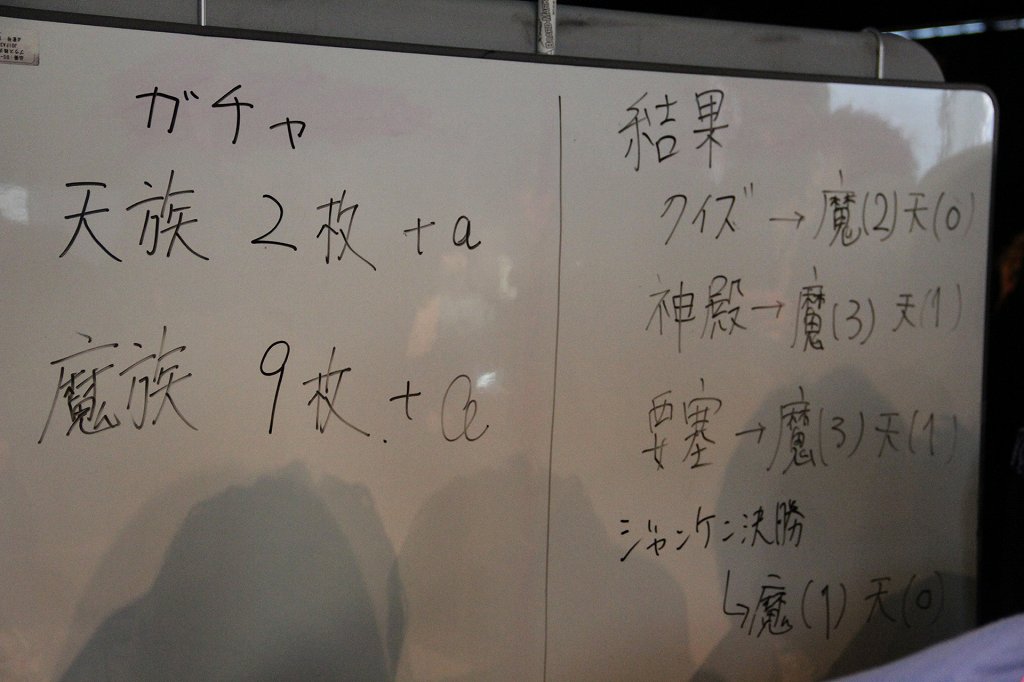 ガチャ
天族 2枚 +a
魔族 9枚 +a
結果
クイズ→魔(2)天(0)
神殿→魔(3) 天(1)
要塞→魔(3)天(1)
ジャンケン決勝
↳魔(1)天(0)